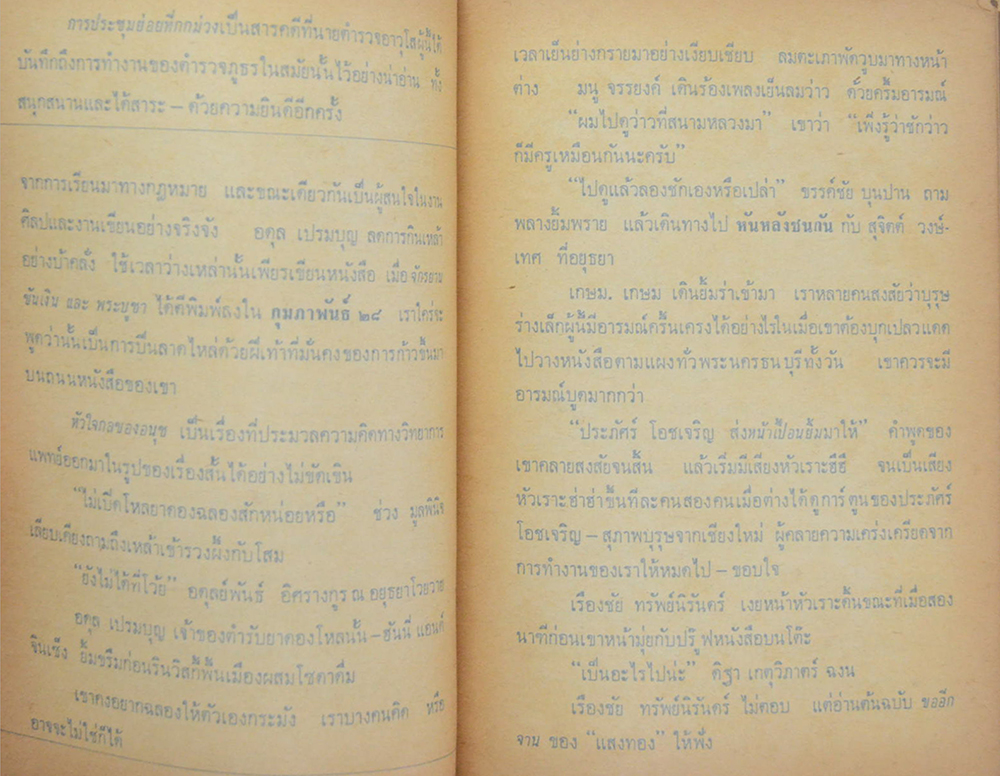 การประชุมย่อยที่กกม่วงเป็นสารคดีที่นายตำรวจอาวุโสผู้นี้ได้
บันทึกถึงการทำงานของตำรวจภูธรในสมัยนั้นไว้อย่างน่าอ่าน ทั้ง
สนุกสนานและได้สาระ – ด้วยความยินดีอีกครั้ง
จากการเรียนมาทางกฎหมาย และขณะเดียวกันเป็นผู้สนใจในงาน
ศิลปและงานเขียนอย่างจริงจัง อดุล เปรมบุญ ลดการกินเหล้า
อย่างบ้าคลั่ง ใช้เวลาว่างเหล่านั้นเพียรเขียนหนังสือ เมื่อ จักรยาน
ขันเงิน และ พระบูชา ได้ตีพิมพ์ลงใน กุมภาพันธ์ ๒๘ เราใคร่จะ
พูดว่านั้นเป็นการปีนลาดไหล่ด้วยฝีเท้าที่มั่นคงของการก้าวขึ้นมา
บนถนนหนังสือของเขา
หัวใจกลของอนุช เป็นเรื่องที่ประมวลความคิดทางวิทยาการ
แพทย์ออกมาในรูปของเรื่องสั้นได้อย่างไม่ขัดเขิน
“ไม่เปิดโหลยาดองฉลองสักหน่อยหรือ” ช่วง มูลพินิจ
เลียบเคียงถามถึงเหล้าเข้ารวงผึ้งกับโสม
“ยังไม่ได้ที่โว้ย” อดุลย์พันธ์ อิศรางกูร ณ อยุธยาโวยวาย
อดุล เปรมบุญ เจ้าของตำรับยาดองโหลนั้น – ฮันนี่ แอนด์
จินเซ็ง ยิ้มขรึมก่อนรินวิสกี้พื้นเมืองผสมโซดาดื่ม
เขาคงอยากฉลองให้ตัวเองกระมัง เราบางคนคิด หรือ
อาจจะไม่ใช่ก็ได้
เวลาเย็นย่างกรายมาอย่างเงียบเชียบ ลมตะเภาพัดวูบมาทางหน้า
ต่าง มนู จรรยงค์ เดินร้องเพลงเย็นลมว่าว ด้วยครึ้มอารมณ์
“ผมไปดูว่าวที่สนามหลวงมา” เขาว่า “เพิ่งรู้ว่าชักว่าว
ก็มีครูเหมือนกันนะครับ”
“ไปดูแล้วลองชักเองหรือเปล่า” ขรรค์ชัย บุนปาน ถาม
พลางยิ้มพราย แล้วเดินทางไป หันหลังชนกัน กับ สุจิตต์ วงษ์-
เทศ ที่อยุธยา
เกษม. เกษม เดินยิ้มร่าเข้ามา เราหลายคนสงสัยว่าบุรุษ
ร่างเล็กผู้นี้มีอารมณ์ครื้นเครงได้อย่างไรในเมื่อเขาต้องบุกเปลวแดด
ไปวางหนังสือตามแผงทั่วพระนครธนบุรีทั้งวัน เขาควรจะมี
อารมณ์บูดมากกว่า
“ประภัศร์ โอชเจริญ ส่งหน้าเปื้อนยิ้มมาให้” คำพูดของ
เขาคลายสงสัยจนสิ้น แล้วเริ่มมีเสียงหัวเราะฮิฮิ จนเป็นเสียง
หัวเราะฮ่าฮ่าขึ้นทีละคนสองคนเมื่อต่างได้ดูการ์ตูนของประภัศร์
โอชเจริญ – สุภาพบุรุษจากเชียงใหม่ ผู้คลายความเคร่งเครียดจาก
การทำงานของเราให้หมดไป – ขอบใจ
เรืองชัย ทรัพย์นิรันดร์ เงยหน้าหัวเราะลั่นขณะที่เมื่อสอง
นาฑีก่อนเขาหน้ามุ่ยกับปรู๊ฟหนังสือบนโต๊ะ
“เป็นอะไรไปน่ะ” ดิฐา เกตุวิภาตร์ ฉงน
เรืองชัย ทรัพย์นิรันดร์ ไม่ตอบ แต่อ่านต้นฉบับ ขออีก
จาน ของ “แสงทอง” ให้ฟัง